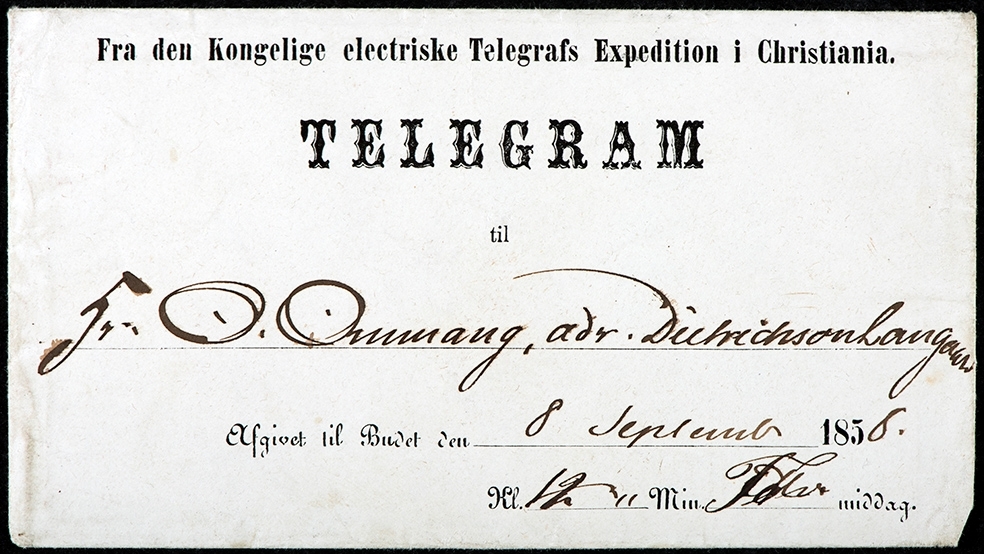 Fra den Kongelige electriske Telegrafs Expedition i Christiania.
TELEGRAM
til
Hr. O. Ommang, adr. Dietrichson
Afgivet til Budet den 8 Septemb 1858.
Kl. 12 " Min. middag.